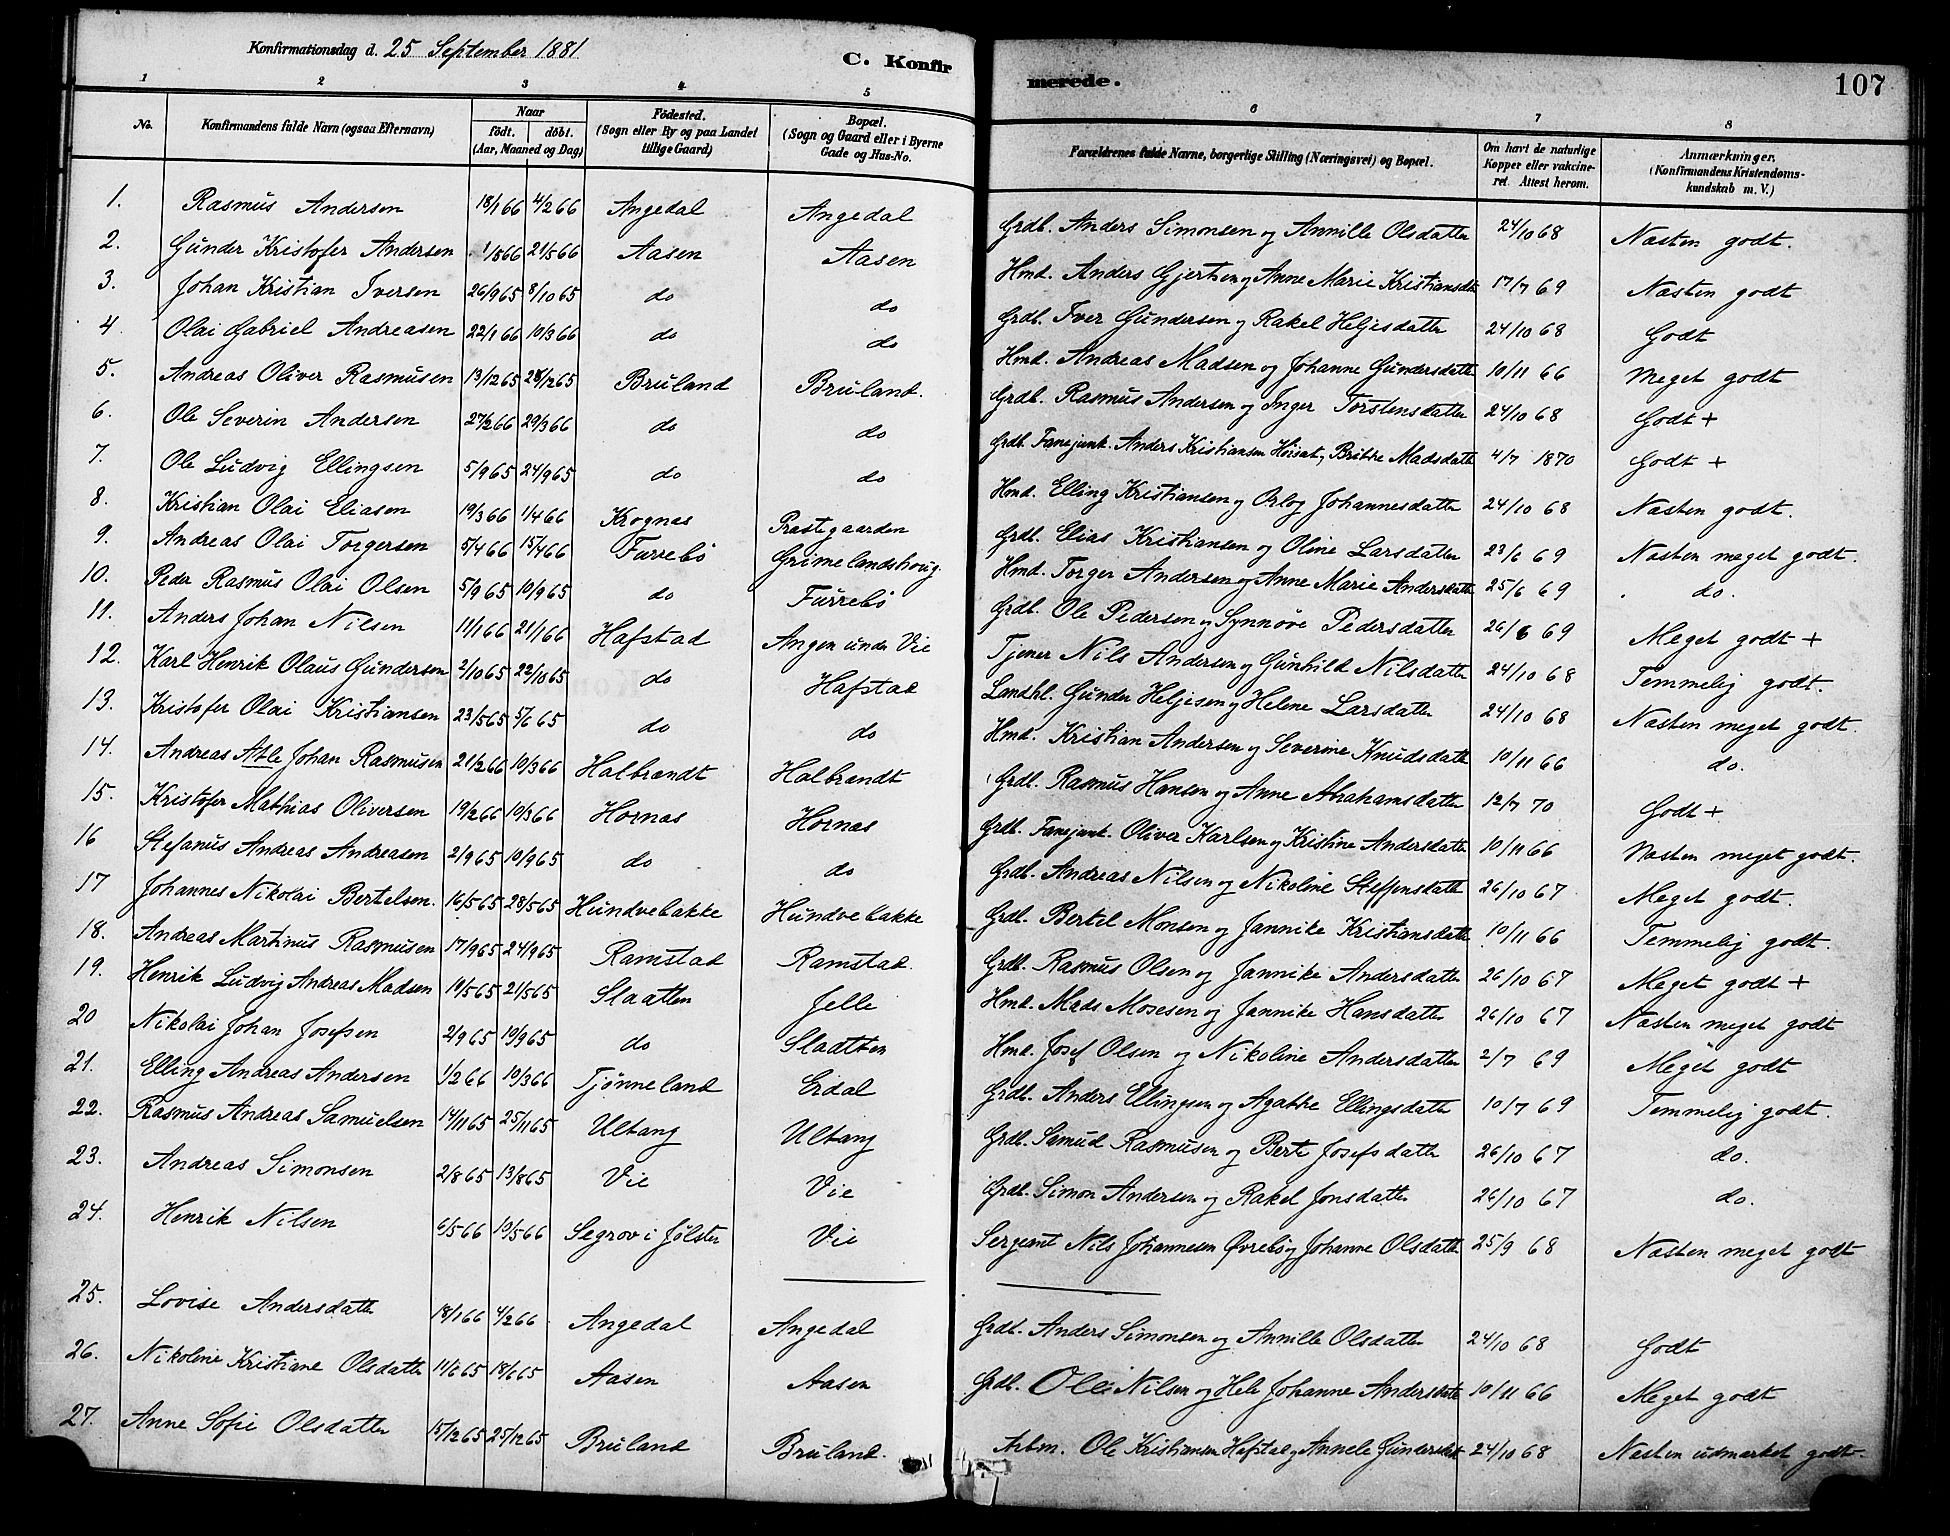 Konfirmationsdag d. 25 September 1881
C. Konfir
merede.
107
1 2 3 4 5 6 7 8
No.
Konfirmandens fulde Navn (ogsaa Efternavn)
Naar
födt. döbt.
(Aar, Maaned og Dag)
Födested.
(Sogn eller By og paa Landet
tillige Gaard)
Bopæl.
(Sogn og Gaard eller i Byerne
Gade og Hus-No.
Forældrenes fulde Navne, borgerlige Stilling (Næringsvei) og Bopæl.
Om havt de naturlige
Kopper eller vakcine-
ret. Attest herom.
Anmærkninger.
(Konfirmandens Kristendoms-
kundskab m. V.)
1. Rasmus Andersen 18/1 66 4/2 66 Angedal Angedal Grdb. Anders Simonsen og Annille Olsdatter 24/10 68 Næsten godt.
2. Gunder Kristofer Andersen 1/5 66 21/5 66 Aasen Aasen Hmd. Anders Gjertsen og Anne Marie Kristiansdtr 17/7 69 Næsten godt
3. Johan Kristian Iversen 26/9 65 8/10 65 do do Grdb. Iver Gundersen og Rakel Heljesdatter 24/10 68 Godt
4. Olai Gabriel Andreasen 22/1 66 10/3 66 do do Hmd. Andreas Madsen og Johanne Gundersdatter 10/11 66 Meget godt
5. Andreas Oliver Rasmusen 13/12 65 28/12 65 Bruland Bruland. Grdb. Rasmus Andersen og Inger Torstensdatter 24/10 68 Godt +
6. Ole Severin Andersen 27/2 66 29/3 66 do do Grdb. Fanejunk. Anders Kristiansen Horsat, Britke Madsdatter 4/7 1870 Godt +
7. Ole Ludvig Ellingsen 5/9 65 24/9 65 do do Hmd. Elling Kristiansen og Orlog Johannesdatter 24/10 68 Næsten godt.
8. Kristian Olai Eliasen 19/3 66 1/4 66 Krognæs Præstegaarden Grdb. Elias Kristiansen og Oline Larsdatter 23/6 69 Næsten meget godt.
9. Andreas Olai Torgersen 5/4 66 15/4 66 Furrebö Grimelandshoug. Hmd. Torger Andersen og Anne Marie Andersdatter 25/6 69 do.
10. Peder Rasmus Olai Olsen 5/9 65 10/9 65 do Furrebö Grdb. Ole Pedersen og Synnöve Pedersdatter 26/6 69 Meget godt +
11. Anders Johan Nilsen 11/1 66 21/1 66 Hafstad Angen under Vie Tjener Nils Andersen og Gunhild Nilsdatter 24/10 68 Temmelig godt.
12. Karl Henrik Olaus Gundersen 2/10 65 22/10 65 do Hafstad Landhl. Gunder Heljesen og Helene Larsdatter 24/10 68 Næsten meget godt.
13. Kristofer Olai Kristiansen 23/5 65 5/6 65 do do Hmd. Kristian Andersen og Severine Knudsdatter 10/11 66 do.
14. Andreas Atle Johan Rasmusen 21/2 66 10/3 66 Halbrendt Halbrendt Grdb. Rasmus Hansen og Anne Abrahamsdatter 12/7 70 Godt +
15. Kristofer Mathias Oliversen 19/2 66 10/3 66 Hornæs Hornæs Grdb. Fanejunk. Oliver Karlsen og Kristine Andersdatter 10/11 66 Næsten meget godt.
16 Stefanus Andreas Andreasen 2/9 65 10/9 65 do do Grdb. Andreas Nilsen og Nikoline Steffensdatter 26/10 67 Meget godt.
17 Johannes Nikolai Bertelsen. 16/5 65 28/5 65 Hundvebakke Hundvebakke Grdb. Bertel Monsen og Jannike Kristiansdatter 10/11 66 Temmelig godt.
18. Andreas Martinus Rasmusen 17/9 65 24/9 65 Ramstad Ramstad. Grdb. Rasmus Olsen og Jannike Andersdatter 26/10 67 Meget godt +
19. Henrik Ludvig Andreas Madsen 10/5 65 21/5 65 Slaatten Jelle Hmd. Mads Mosesen og Jannike Hansdatter 26/10 67 Næsten meget godt
20 Nikolai Johan Josefsen 2/9 65 10/9 65 do Slaatten Hmd. Josef Olsen og Nikoline Andersdatter 2/7 69 Meget godt
21. Elling Andreas Andersen 1/2 66 10/3 66 Tjønneland Erdal Grdb. Anders Ellingsen og Agathe Ellingsdatter 10/7 69 Temmelig godt.
22. Rasmus Andreas Samuelsen 14/11 65 25/11 65 Ultang Ultang Grdb. Samuel Rasmusen og Berte Josefsdatter 26/10 67 do.
23. Andreas Simonsen 2/8 65 13/8 65 Vie Vie Grdb. Simon Andersen og Rakel Jonsdatter 26/10 67 do.
24. Henrik Nilsen 6/5 66 10/5 66 Segrov i Jölster Vie Sergeant Nils Johannesen Øvrebö og Johanne Olsdatter 25/9 68 Næsten meget godt
25. Lovise Andersdatter 18/1 66 4/2 66 Angedal Angedal Grdb. Anders Simonsen og Annille Olsdatter 24/10 68 Godt
26. Nikoline Kristiane Olsdatter 11/6 65 18/6 65 Aasen Aasen Grdb. Ole Nilsen og Hele Johanne Andersdatter 10/11 66 Meget godt
27. Anne Sofie Olsdatter 15/12 65 25/12 65 Bruland Bruland. Arbm. Ole Kristiansen Hafstad og Annele Gundersdtr 24/10 68 Næsten udmærket godt.